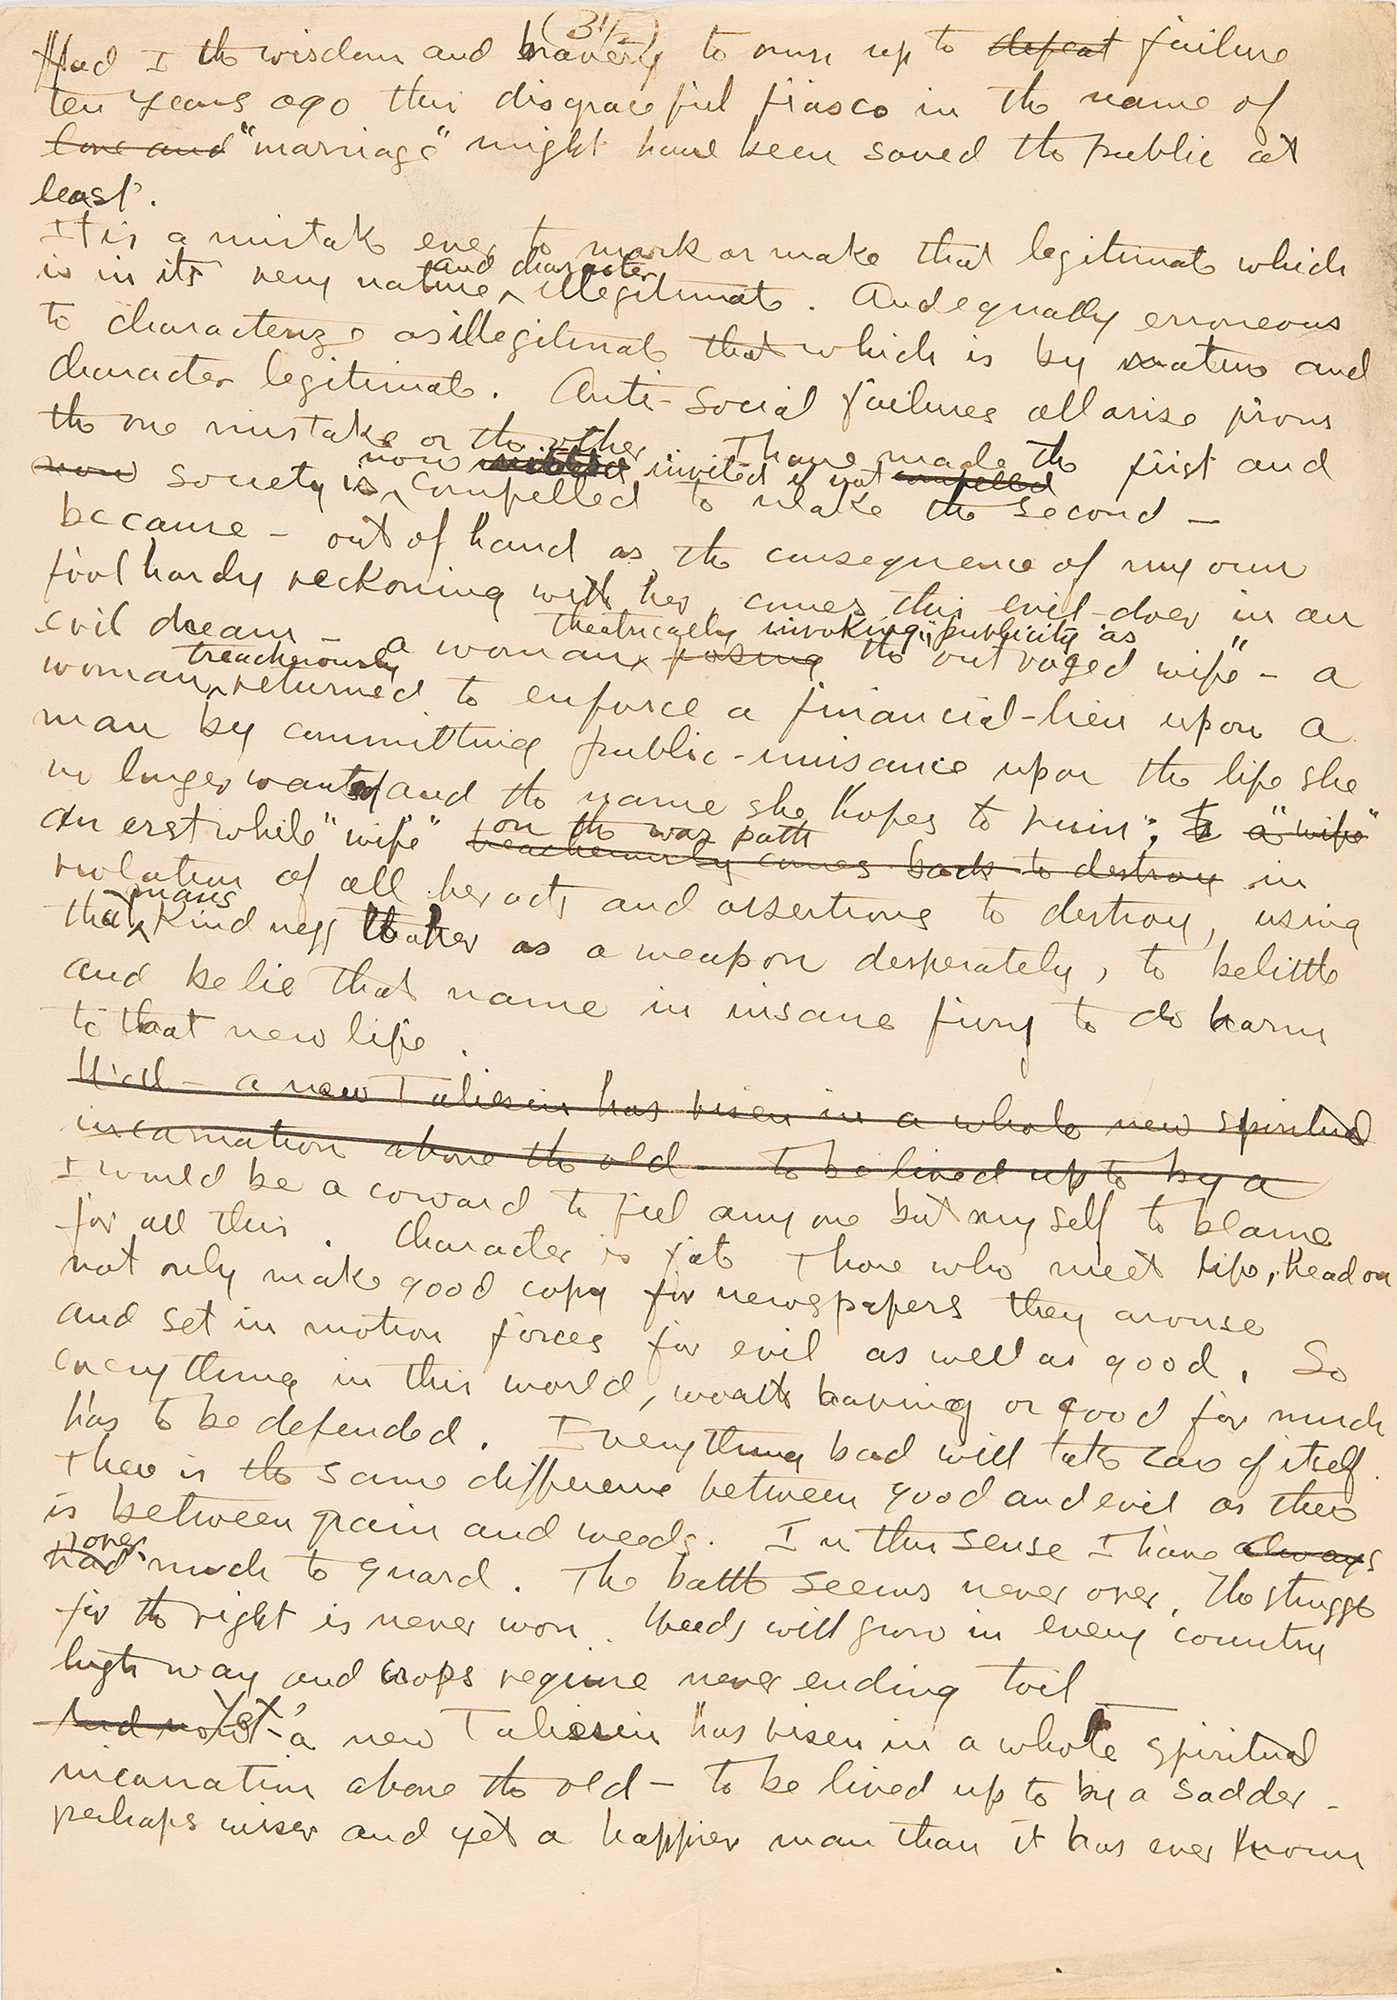 (3½)
Had I the wisdom and bravery to own up to defeat failure
ten years ago this disgraceful fiasco in the name of
love and "marriage" might have been saved the public at
least.
It is a mistake ever to mark or make that legitimate which
is in its very nature and character illegitimate. And equally erroneous
to characterize as illegitimate that which is by nature and
character legitimate. Anti-social failures all arise from
the one mistake or the other. I have made the first and
now society is now invited if not compelled compelled to make the second –
because – out of hand as the consequence of my own
fool hardy reckoning with her, comes this evil-doer in an
evil dream – a woman theatrically invoking "publicity" as posing the "outraged wife" – a
woman treacherously returned to enforce a financial-lien upon a
man by committing public-nuisance upon the life she
no longer wanted and the name she hopes to ruin; a "wife"
An erstwhile "wife" on the war path treacherously comes back to destroy in
violation of all her acts and assertions to destroy, using
that mans kindness to her as a weapon desperately, to belittle
and belie that name in insane fury to do harm
to that new life.
Well – a new Taliesin has risen in a whole new spiritual
incarnation above the old – to be lived up to by a
I would be a coward to feel any one but myself to blame
for all this. Character is fate Those who meet life, head on
not only make good copy for newspapers they arouse
and set in motion forces for evil as well as good. So
everything in this world, worth having or good for much
has to be defended. Everything bad will take care of itself.
There is the same difference between good and evil as there
is between grain and weeds. In this sense I have always
had much to guard. The battle seems never over. The struggle
for the right is never won. Weeds will grow in every country
high way and crops require never ending toil
And now Yet, a new Taliesin has risen in a whole spiritual
incarnation above the old – to be lived up to by a sadder –
perhaps wiser and yet a happier man than it has ever known